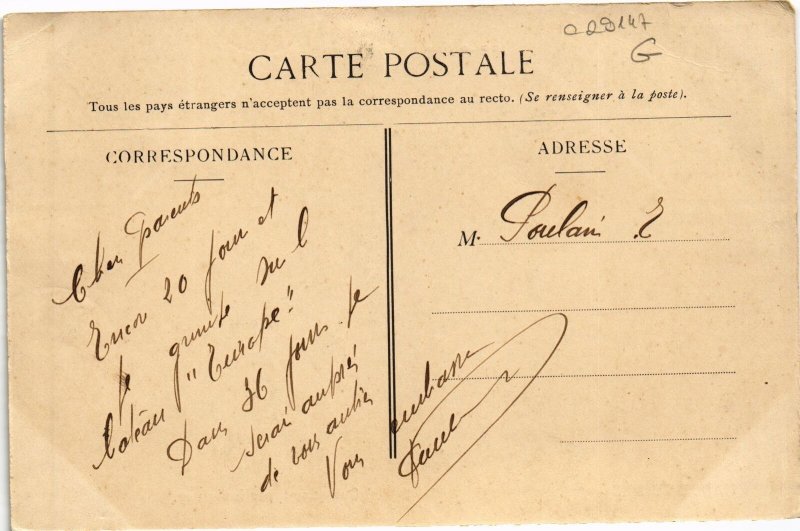 02D147
G
CARTE POSTALE
Tous les pays étrangers n'acceptent pas la correspondance au recto. (Se renseigner à la poste).
CORRESPONDANCE
Chers parents
Encore 20 jours et
je quitte sur l
bateau "Europe"
Dans 36 jours je
serai auprès
de vous
Vous embrasse
ADRESSE
M. Poulain E